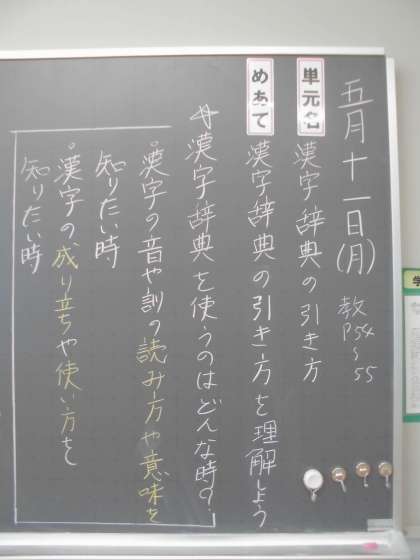 五月十一日(月)
教P54〜55
単元名 漢字辞典の引き方
めあて 漢字辞典の引き方を理解しよう
漢字辞典を使うのはどんな時?
。漢字の音や訓の読み方や意味を
知りたい時
。漢字の成り立ちや使い方を
知りたい時